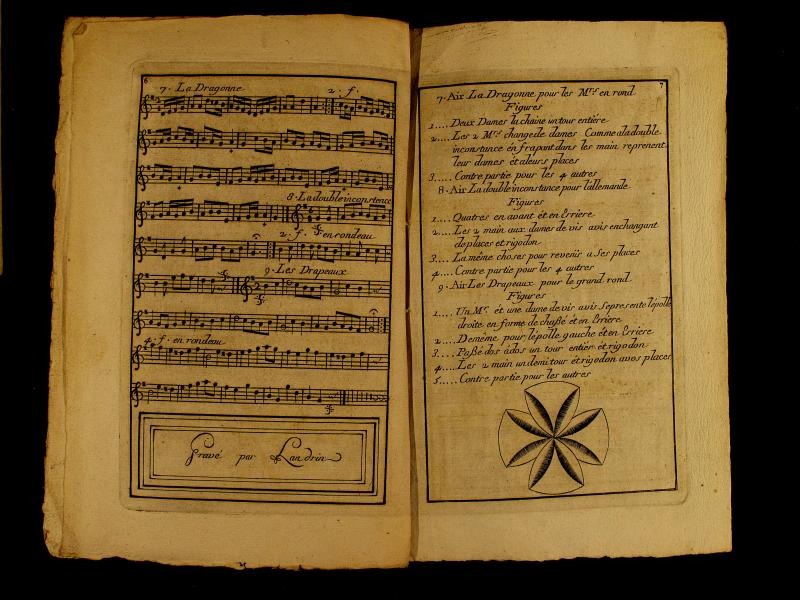 6
7. La Dragonne 2. f.
8. La double inconstence
2. f. en rondeau
9. Les Drapeaux
4. f. en rondeau
Gravé par Landrin
7
7. Air La Dragonne pour les Mrs. en rond
Figures
1.... Deux Dames la chaine un tour entière
2.... Les 2 Mrs. change de dames Comme a la double
inconstance én frapant dans les main reprenent
leur dames ét a leurs places
3..... Contre partie pour les 4 autres
8. Air La double inconstance pour l'allemande
Figures
1.... Quatres en avant ét en Erriére
2.... Les 2 main aux dames de vis avis en changant
de places et rigodon
3.... La même choses pour revenir a Ses places
4.... Contre partie pour les 4 autres
9. Air Les Drapeaux pour le grand rond
Figures
1.... Un Mr. ét une dame de vis avis Se presente l'épolle
droite en forme de chassé ét en Erriére
2.... De même pour l'épolle gauche ét en Erriére
3.... Passé dos àdos un tour entiér ét rigodon
4.... Les 2 main un demi tour ét rigodon avos places
5..... Contre partie pour les autres